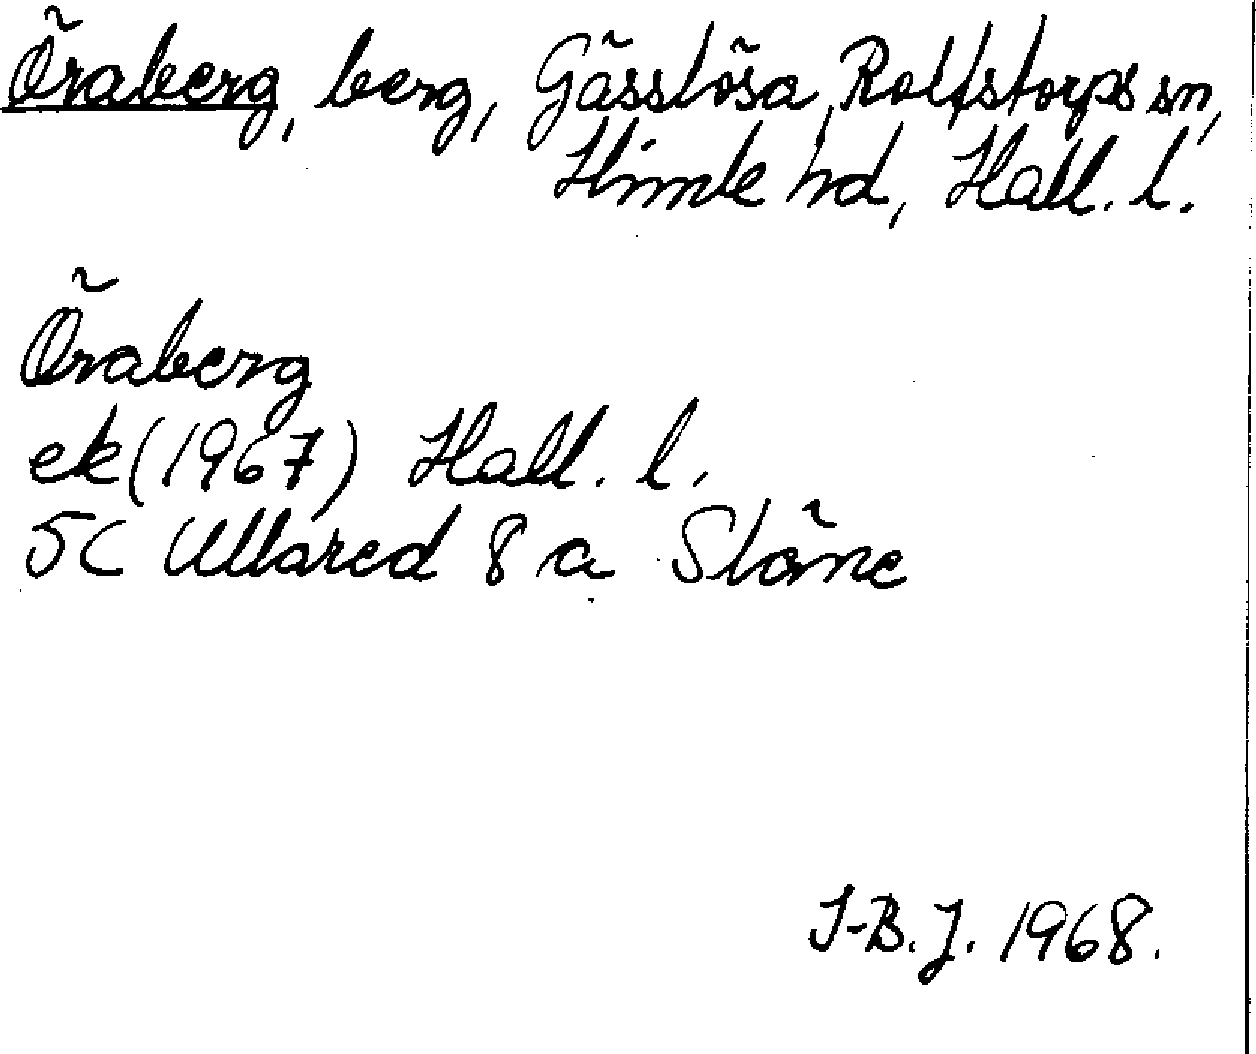 Öraberg, berg, Gässlösa, Rolfstorps sn,
Himle hd, Hall. l.
Öraberg
ek (1967) Hall. l.
5C Ullared 8 a Släne
I-B. J. 1968.